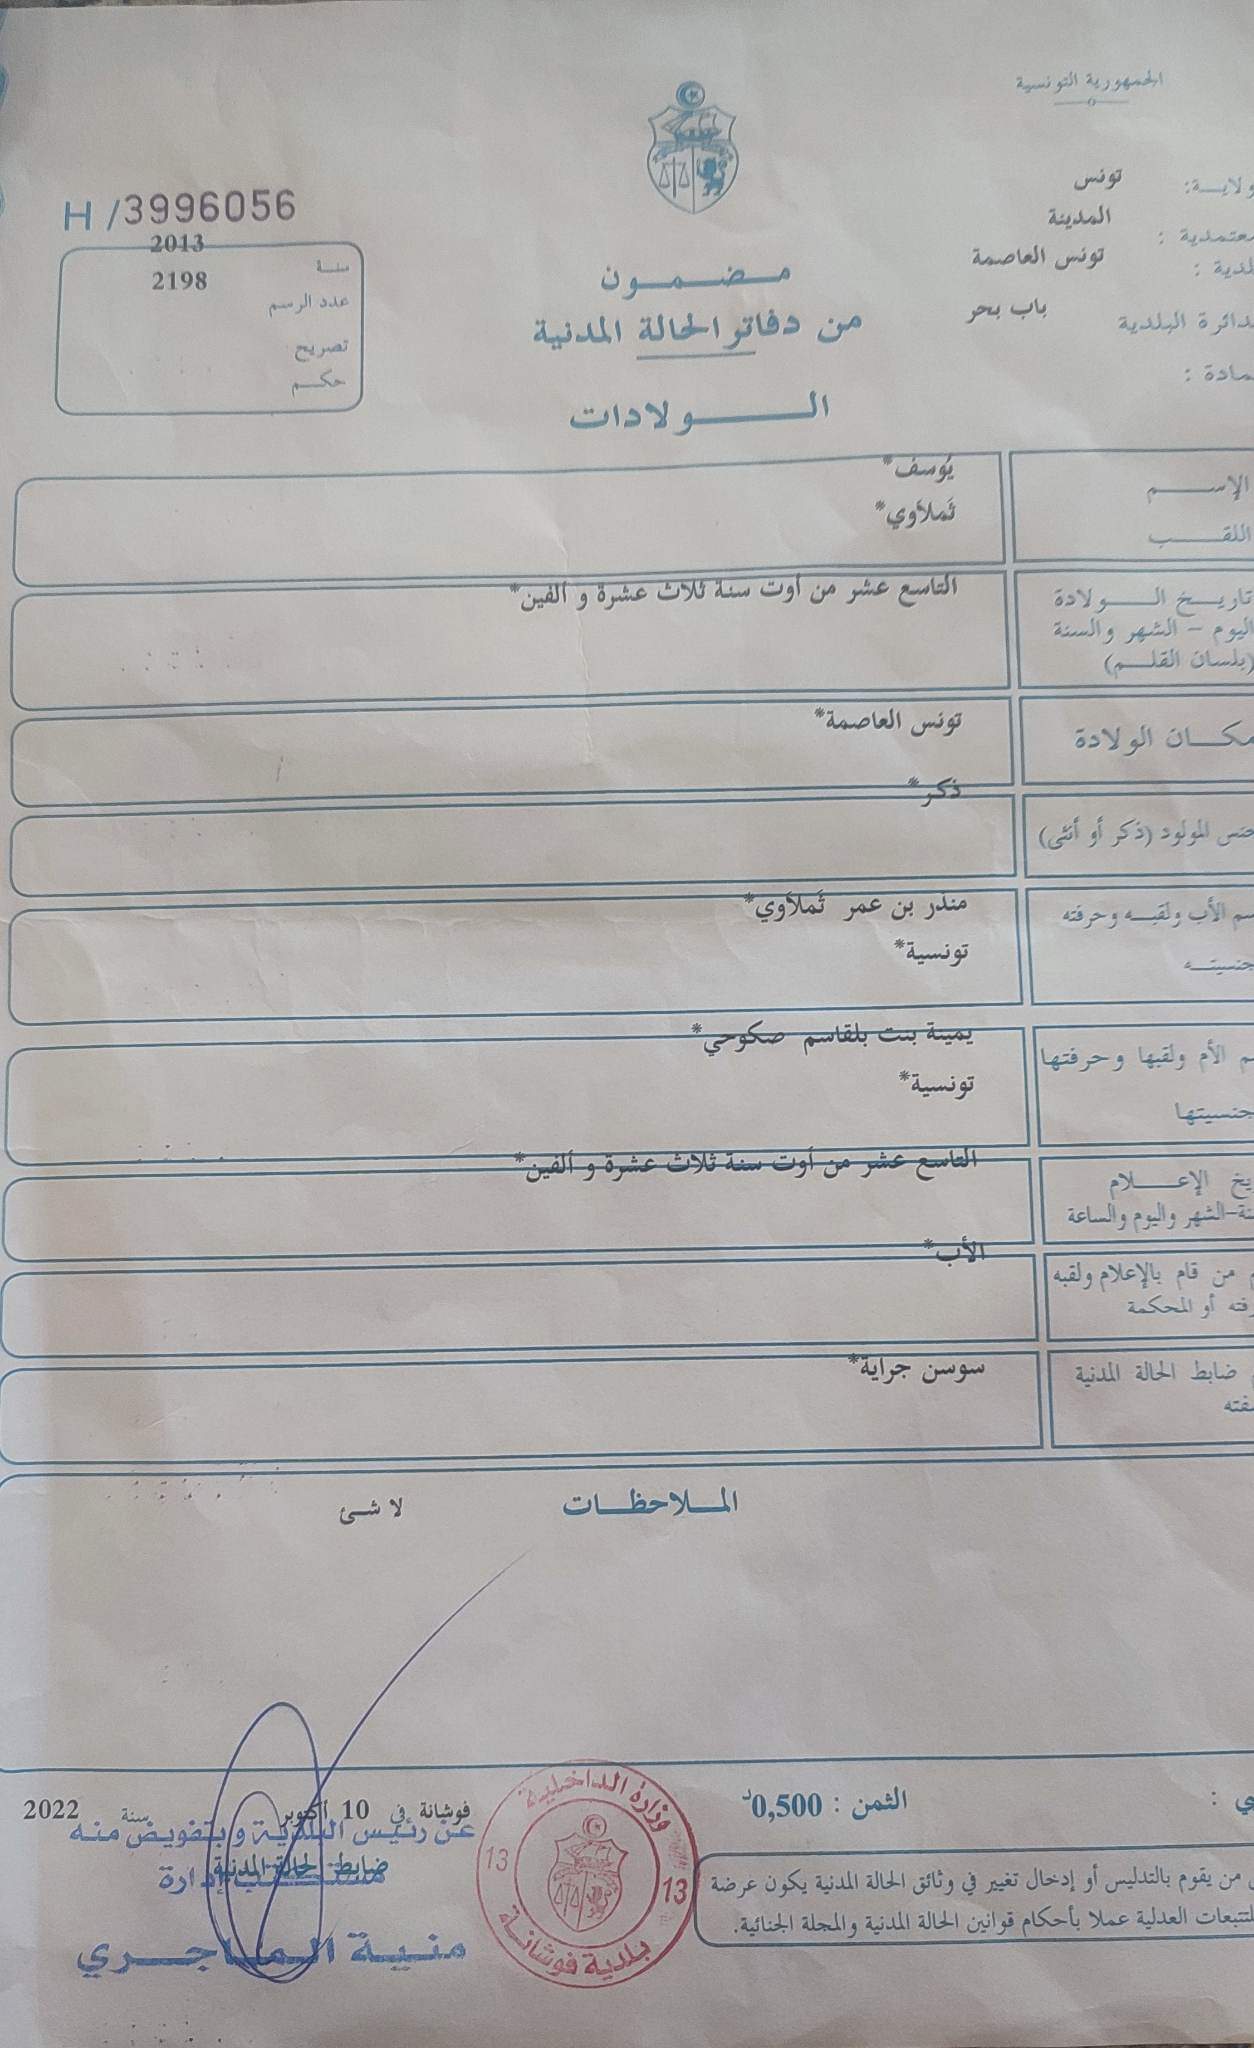 الجمهورية التونسية
ولايـة: تونس
معتمدية : المدينة
بلدية : تونس العاصمة
الدائرة البلدية باب بحر
عمادة :
H /3996056
سنة 2013
عدد الرسم 2198
تصريح
حكم
مضمون
من دفاتر الحالة المدنية
الولادات
الإسم يُوسف*
اللقب ثَملاَوي*
تاريخ الولادة التاسع عشر من أوت سنة ثلاث عشرة و ألفين*
اليوم – الشهر والسنة
(بلسان القلم)
مكان الولادة تونس العاصمة*
جنس المولود (ذكر أو أنثى) ذكر*
إسم الأب ولقبه وحرفته منذر بن عمر ثَملاَوي*
جنسيته تونسية*
إسم الأم ولقبها وحرفتها يمينة بنت بلقاسم صكوحي*
جنسيتها تونسية*
تاريخ الإعلام التاسع عشر من أوت سنة ثلاث عشرة و ألفين*
السنة-الشهر واليوم والساعة
من قام بالإعلام ولقبه الأب*
حرفته أو المحكمة
ضابط الحالة المدنية سوسن جراية*
صفته
الملاحظات لا شئ
الثمن : 0,500د
فوشانة في 10 أكتوبر سنة 2022
عن رئيس البلدية و بتفويض منه
ضابط الحالة المدنية
إدارة
منية الماجري
وزارة الداخلية
13 13
بلدية فوشانة
من يقوم بالتدليس أو إدخال تغيير في وثائق الحالة المدنية يكون عرضة
للتتبعات العدلية عملا بأحكام قوانين الحالة المدنية والمجلة الجنائية.